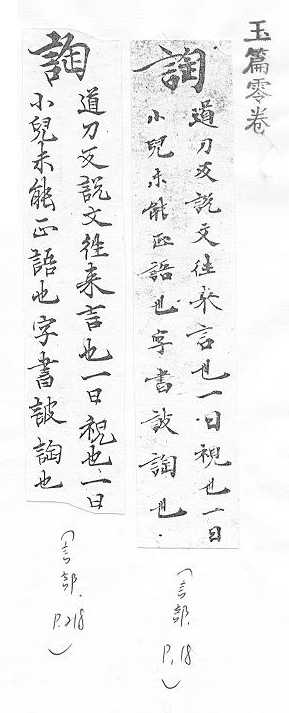 玉篇零卷
䛬
道刀反說文往来言也一曰祝也一曰
小兒未能正語也字書詖䛬也
(言部. P.18)
䛬
道刀反說文往来言也一曰祝也一曰
小兒未能正語也字書詖䛬也
(言部. P.218)